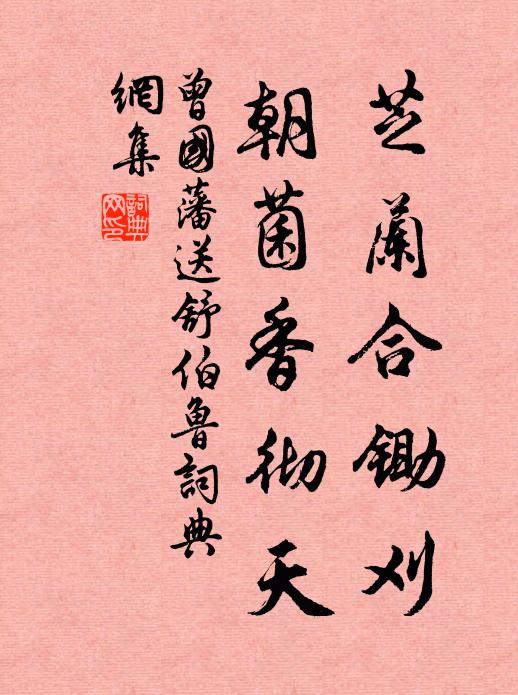 芝蘭合锄刈
朝菌香彻天
曾國藩送舒伯鲁詞典
網集
詞典
网印